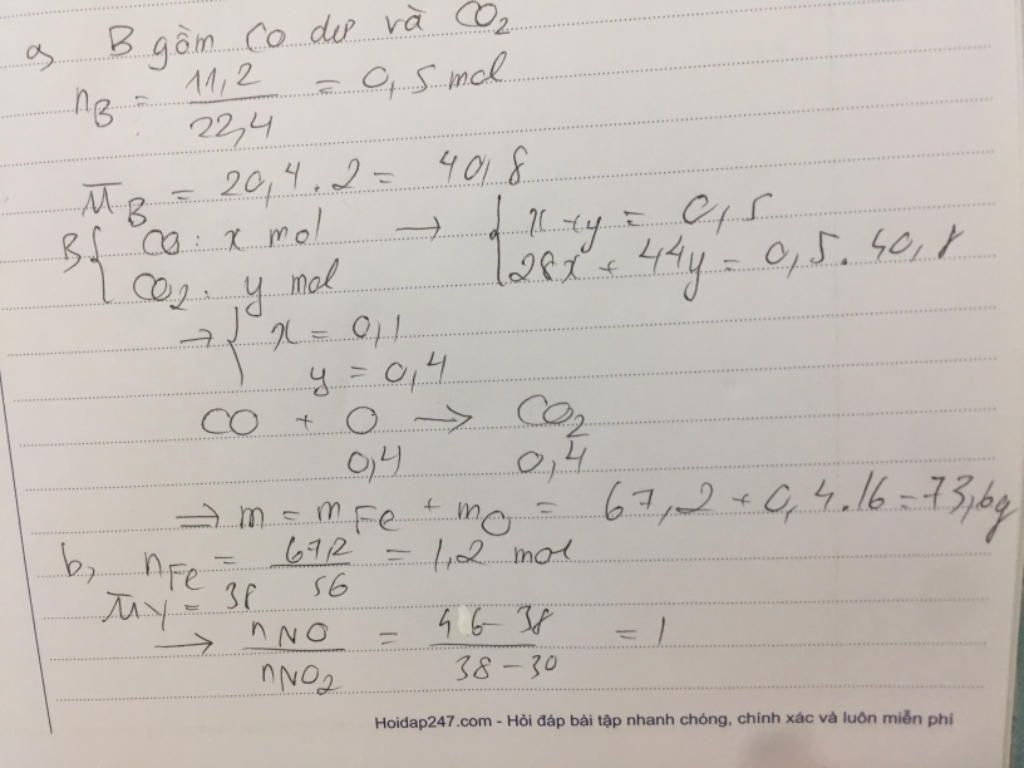 a, B gồm CO dư và CO2
nB = 11,2 / 22,4 = 0,5 mol
M̅B = 20,4 . 2 = 40,8
B { CO : x mol → { x + y = 0,5
CO2 : y mol 28x + 44y = 0,5 . 40,8
→ { x = 0,1
y = 0,4
CO + O → CO2
0,4 0,4
⇒ m = mFe + mO = 67,2 + 0,4.16 = 73,6g
b, nFe = 67,2 / 56 = 1,2 mol
M̅Y = 38
→ nNO / nNO2 = 46 - 38 / 38 - 30 = 1
Hoidap247.com - Hỏi đáp bài tập nhanh chóng, chính xác và luôn miễn phí